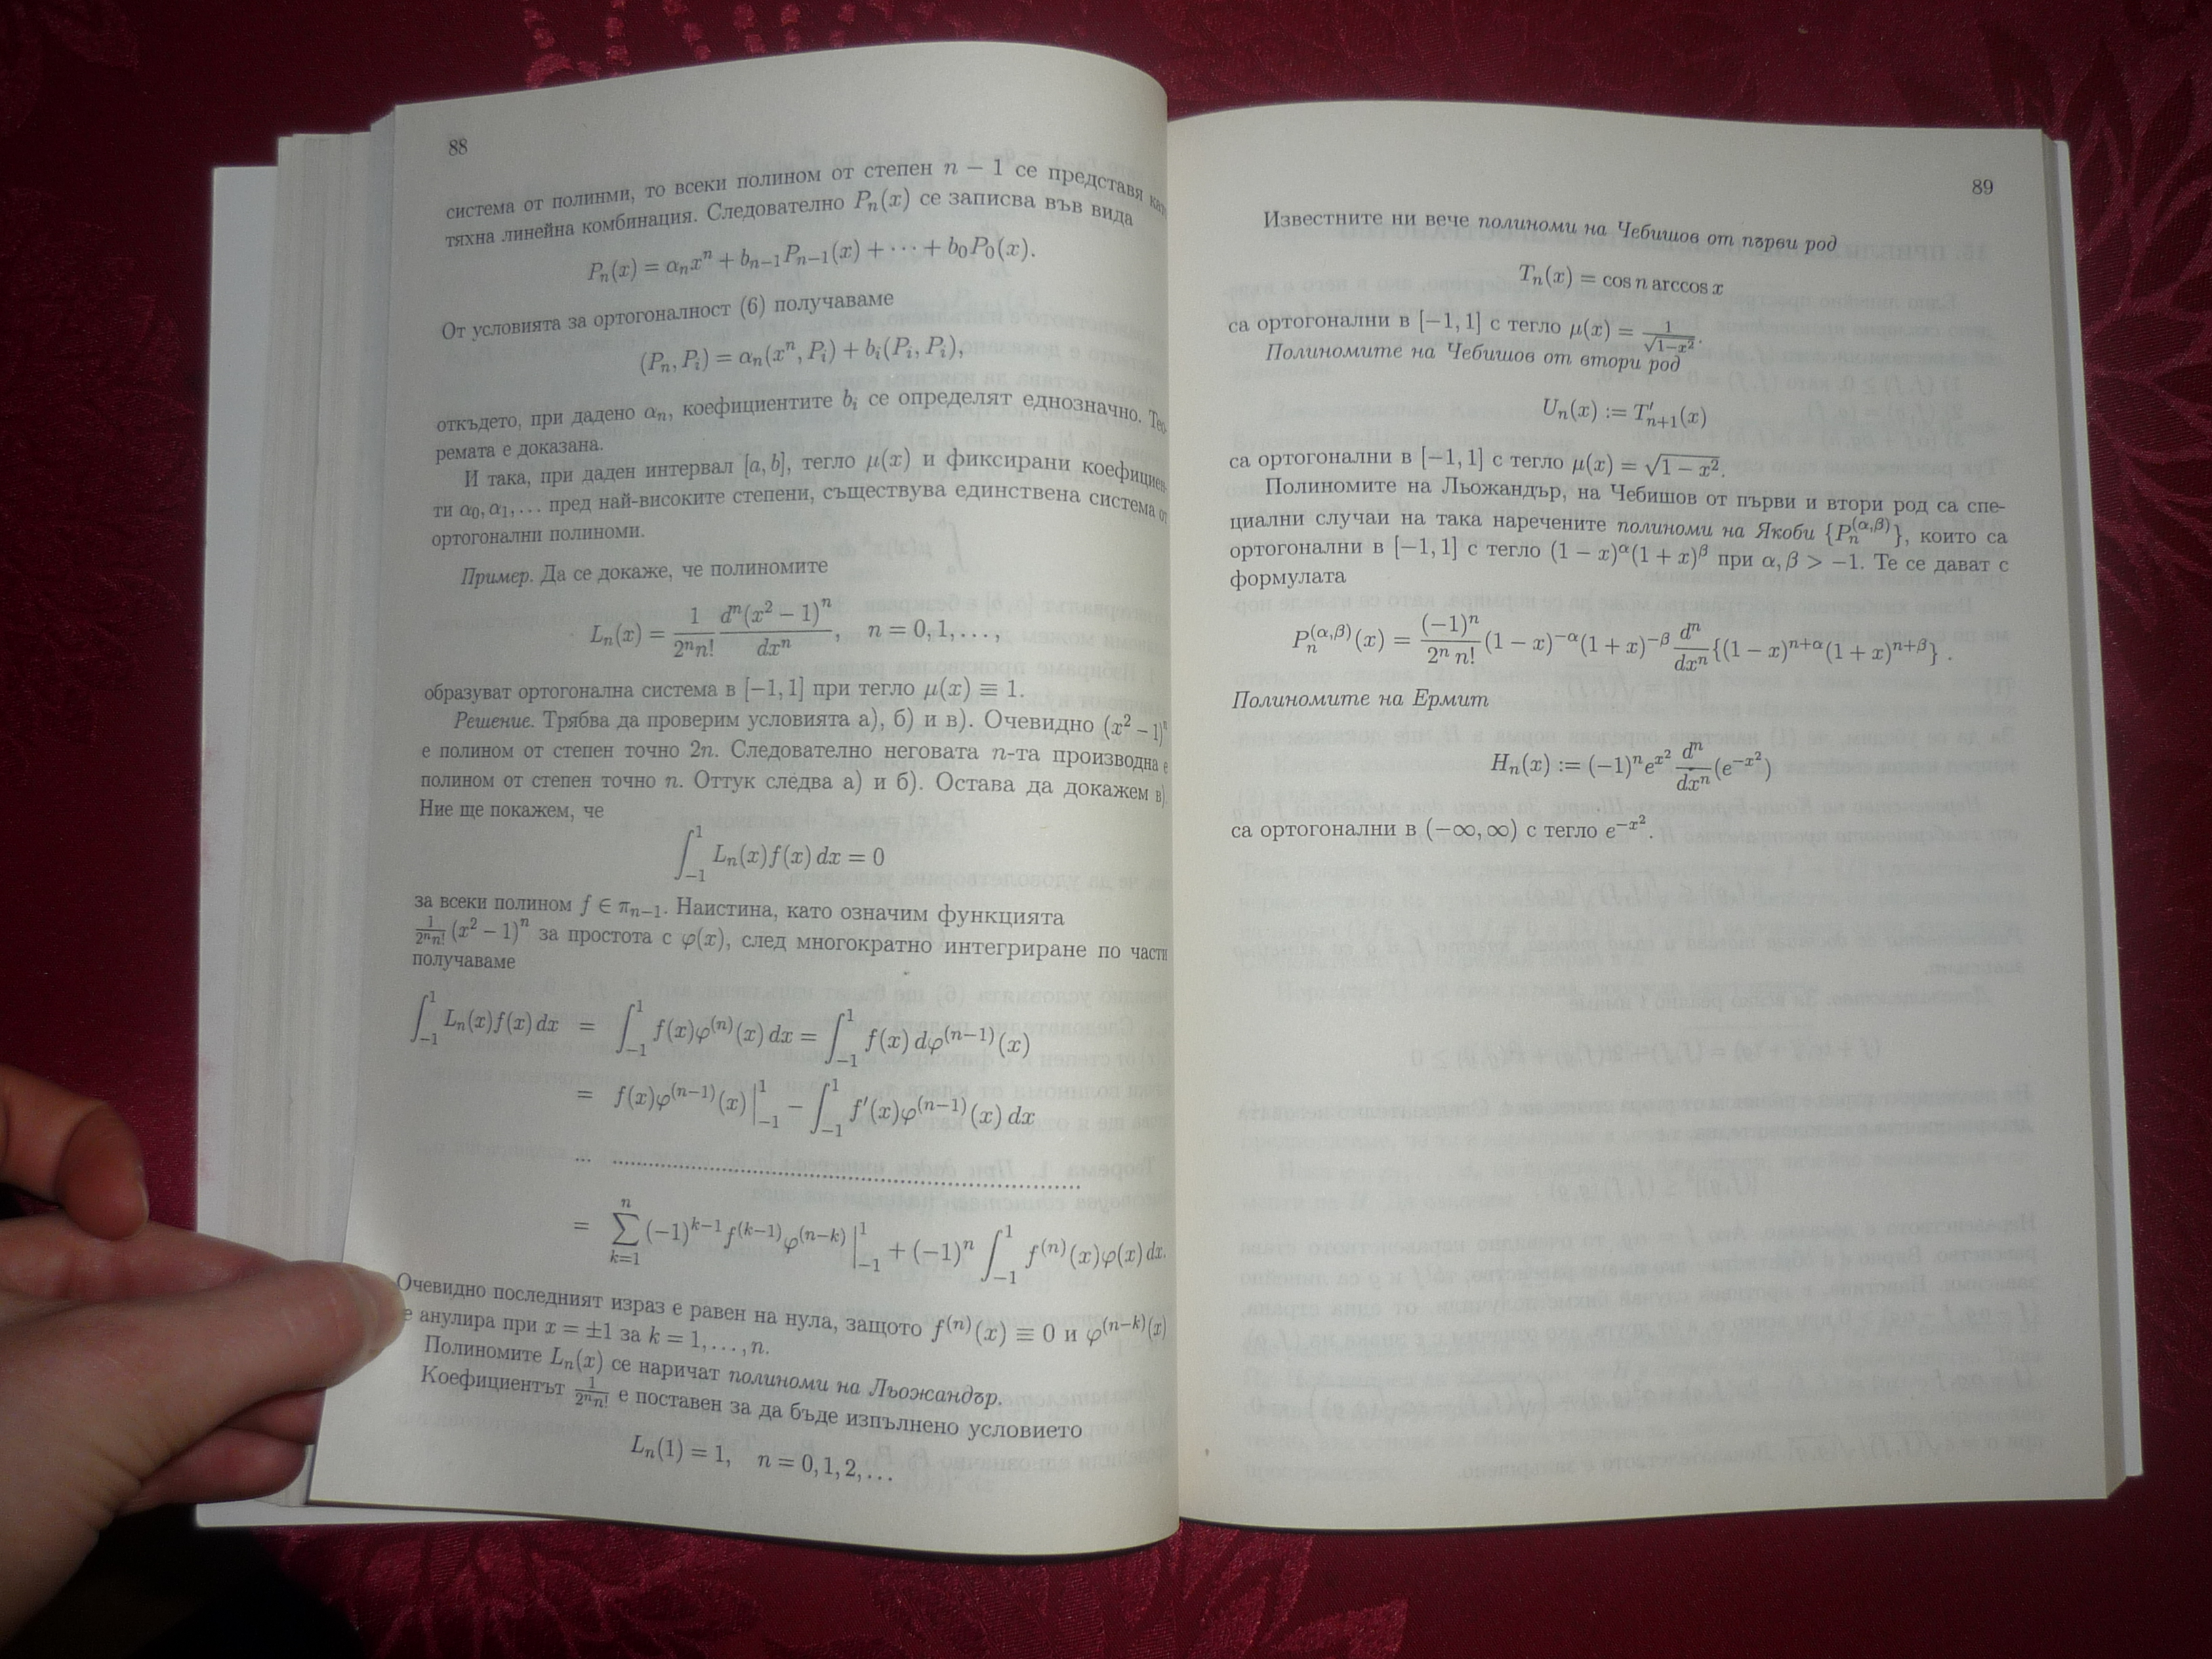 88
система от полинми, то всеки полином от степен n − 1 се представя
тяхна линейна комбинация. Следователно Pₙ(x) се записва във вида
Pₙ(x) = αₙxⁿ + bₙ₋₁Pₙ₋₁(x) + ··· + b₀P₀(x).
От условията за ортогоналност (6) получаваме
(Pₙ, Pᵢ) = αₙ(xⁿ, Pᵢ) + bᵢ(Pᵢ, Pᵢ),
откъдето, при дадено αₙ, коефициентите bᵢ се определят еднозначно. Тео-
ремата е доказана.
И така, при даден интервал [a, b], тегло μ(x) и фиксирани коефициен-
ти α₀, α₁, ... пред най-високите степени, съществува единствена система от
ортогонални полиноми.
Пример. Да се докаже, че полиномите
Lₙ(x) = \frac{1}{2ⁿn!} \frac{dⁿ(x² − 1)ⁿ}{dxⁿ}, n = 0, 1, ...,
образуват ортогонална система в [−1, 1] при тегло μ(x) ≡ 1.
Решение. Трябва да проверим условията а), б) и в). Очевидно (x² − 1)ⁿ
е полином от степен точно 2n. Следователно неговата n-та производна е
полином от степен точно n. Оттук следва а) и б). Остава да докажем в).
Ние ще покажем, че
∫_{−1}^{1} Lₙ(x)f(x) dx = 0
за всеки полином f ∈ πₙ₋₁. Наистина, като означим функцията
\frac{1}{2ⁿn!}(x² − 1)ⁿ за простота с φ(x), след многократно интегриране по части
получаваме
∫_{−1}^{1} Lₙ(x)f(x) dx = ∫_{−1}^{1} f(x)φ^{(n)}(x) dx = ∫_{−1}^{1} f(x) dφ^{(n−1)}(x)
= f(x)φ^{(n−1)}(x)|_{−1}^{1} − ∫_{−1}^{1} f′(x)φ^{(n−1)}(x) dx
... ............................................................
= ∑_{k=1}^{n} (−1)^{k−1} f^{(k−1)}φ^{(n−k)}|_{−1}^{1} + (−1)ⁿ ∫_{−1}^{1} f^{(n)}(x)φ(x) dx.
Очевидно последният израз е равен на нула, защото f^{(n)}(x) ≡ 0 и φ^{(n−k)}(x)
е анулира при x = ±1 за k = 1, ..., n.
Полиномите Lₙ(x) се наричат полиноми на Льожандър.
Коефициентът \frac{1}{2ⁿn!} е поставен за да бъде изпълнено условието
Lₙ(1) = 1, n = 0, 1, 2, ...
89
Известните ни вече полиноми на Чебишов от първи род
Tₙ(x) = cos n arccos x
са ортогонални в [−1, 1] с тегло μ(x) = \frac{1}{\sqrt{1−x²}}.
Полиномите на Чебишов от втори род
Uₙ(x) := T′ₙ₊₁(x)
са ортогонални в [−1, 1] с тегло μ(x) = \sqrt{1 − x²}.
Полиномите на Льожандър, на Чебишов от първи и втори род са спе-
циални случаи на така наречените полиноми на Якоби {Pₙ^{(α,β)}}, които са
ортогонални в [−1, 1] с тегло (1 − x)^α(1 + x)^β при α, β > −1. Те се дават с
формулата
Pₙ^{(α,β)}(x) = \frac{(−1)ⁿ}{2ⁿ n!}(1 − x)^{−α}(1 + x)^{−β} \frac{dⁿ}{dxⁿ}{(1 − x)^{n+α}(1 + x)^{n+β}} .
Полиномите на Ермит
Hₙ(x) := (−1)ⁿe^{x²} \frac{dⁿ}{dxⁿ}(e^{−x²})
са ортогонални в (−∞, ∞) с тегло e^{−x²}.